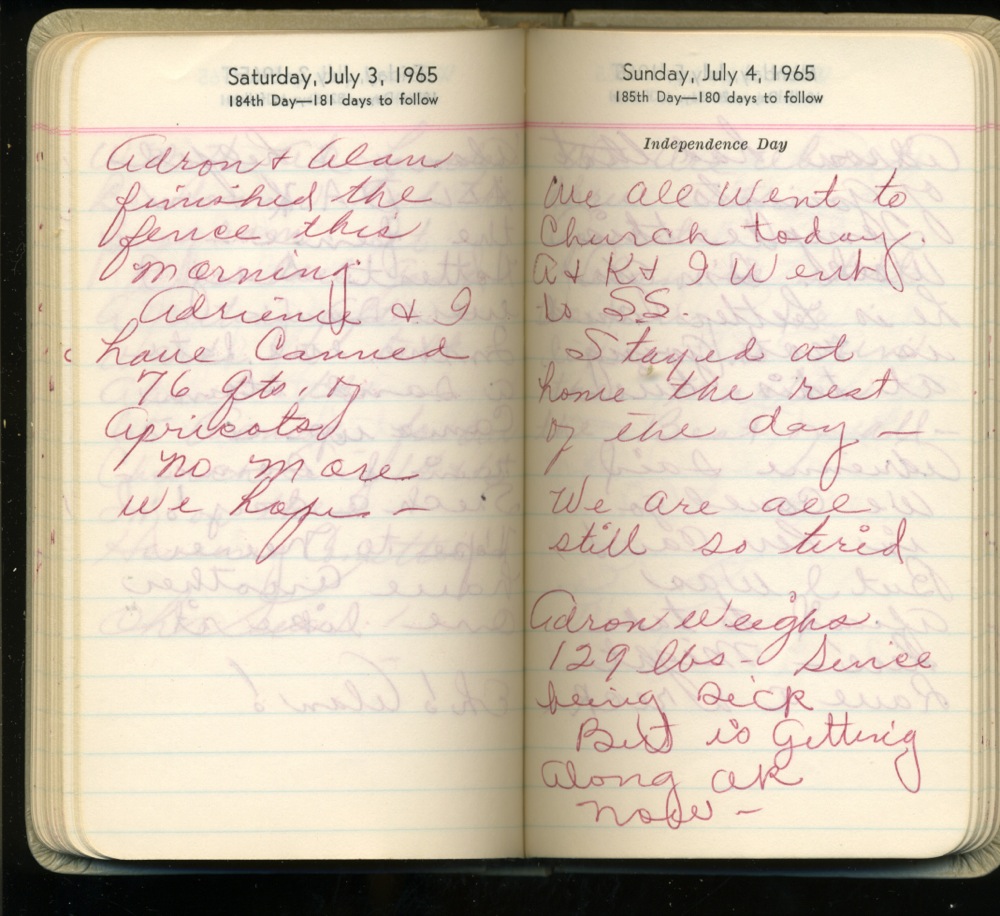 Saturday, July 3, 1965
184th Day—181 days to follow
Adron & Alan
finished the
fence this
morning.
Adriene & I
have Canned
76 qts. of
Apricots
no more
we hope —
Sunday, July 4, 1965
185th Day—180 days to follow
Independence Day
We all Went to
Church today.
A & K & I Went
to SS.
Stayed at
home the rest
of the day —
We are all
still so tired
Adron Weighs
129 lbs - Since
being Sick
But is Getting
Along ok
now —